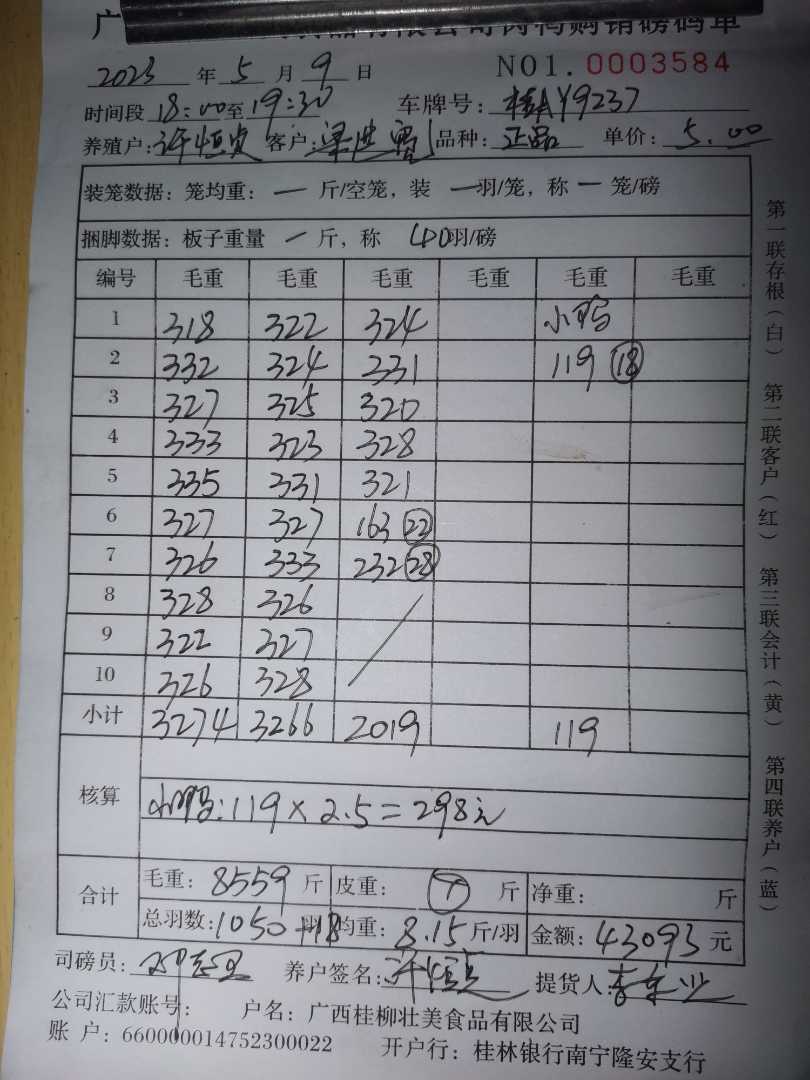 品有限公司肉鸭购销磅码单
2023 年 5 月 9 日 NO1. 0003584
时间段 18:00至19:30 车牌号: 桂AY9237
养殖户: 许恒 客户: 梁世 品种: 正品 单价: 5.00
装笼数据: 笼均重: 一 斤/空笼, 装 一羽/笼, 称一 笼/磅
捆脚数据: 板子重量 一 斤, 称 40羽/磅
编号 毛重 毛重 毛重 毛重 毛重 毛重
1 318 322 324 小鸭
2 332 324 331 119 ⑱
3 327 325 320
4 333 323 328
5 335 331 321
6 327 327 163 ㉒
7 326 333 232 ㉘
8 328 326
9 322 327
10 326 328
小计 3274 3266 2019 119
核算 小鸭:119×2.5=298元
合计 毛重: 8559 斤 皮重: 斤 净重: 斤
总羽数:1050+18羽 均重: 8.15斤/羽 金额: 43093元
司磅员: 养户签名: 许恒 提货人:李
公司汇款账号: 户名: 广西桂柳壮美食品有限公司
账 户: 660000014752300022 开户行: 桂林银行南宁隆安支行
第一联存根(白) 第二联客户(红) 第三联会计(黄) 第四联养户(蓝)